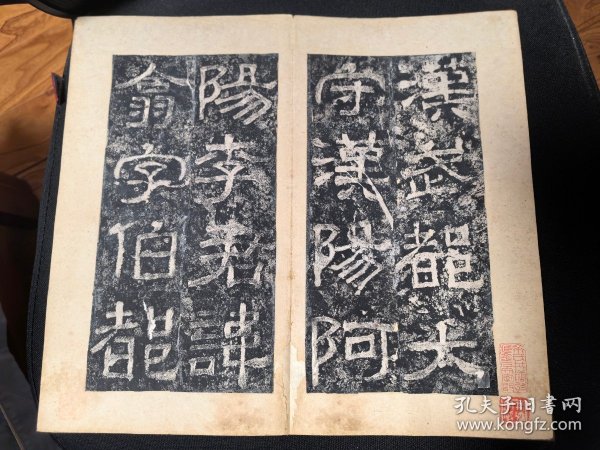 漢武都大
守漢陽阿
陽李君諱
翕字伯都
孔夫子旧书网
www.kongfz.com